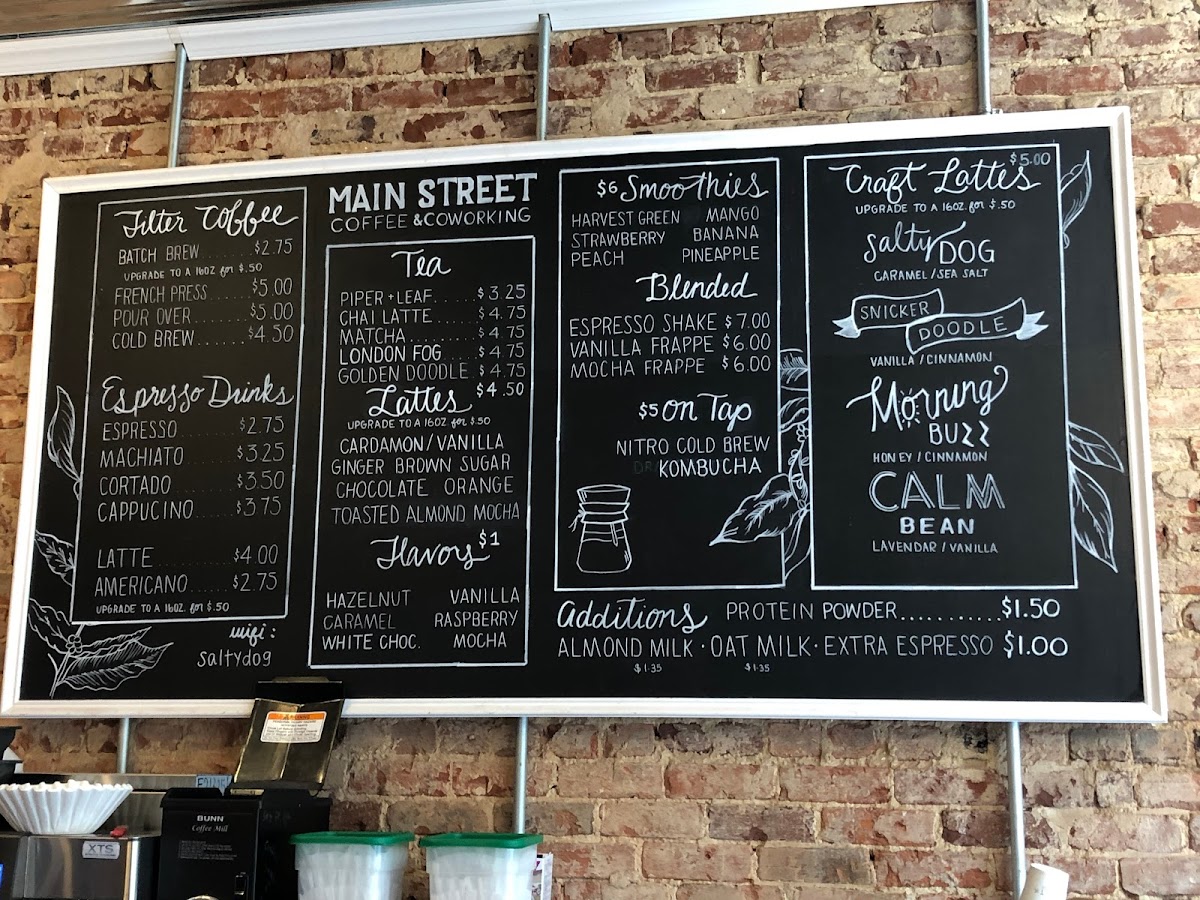 Filter Coffee
BATCH BREW $2.75
UPGRADE TO A 16OZ for $.50
FRENCH PRESS......$5.00
POUR OVER........$5.00
COLD BREW.......$4.50
Espresso Drinks
ESPRESSO.........$2.75
MACHIATO........$3.25
CORTADO........$3.50
CAPPUCINO.....$3.75
LATTE..........$4.00
AMERICANO......$2.75
UPGRADE TO A 16OZ. for $.50
wifi:
saltydog
MAIN STREET
COFFEE & COWORKING
Tea
PIPER + LEAF.....$3.25
CHAI LATTE......$4.75
MATCHA.........$4.75
LONDON FOG....$4.75
GOLDEN DOODLE.$4.75
Lattes $4.50
UPGRADE TO A 16OZ. for $.50
CARDAMON/VANILLA
GINGER BROWN SUGAR
CHOCOLATE ORANGE
TOASTED ALMOND MOCHA
Flavors $1
HAZELNUT VANILLA
CARAMEL RASPBERRY
WHITE CHOC. MOCHA
$6 Smoothies
HARVEST GREEN MANGO
STRAWBERRY BANANA
PEACH PINEAPPLE
Blended
ESPRESSO SHAKE $7.00
VANILLA FRAPPE $6.00
MOCHA FRAPPE $6.00
$5 on Tap
NITRO COLD BREW
KOMBUCHA
Craft Lattes $5.00
UPGRADE TO A 16OZ. for $.50
Salty DOG
CARAMEL/SEA SALT
SNICKER
DOODLE
VANILLA/CINNAMON
Morning
BUZZ
HONEY/CINNAMON
CALM
BEAN
LAVENDAR/VANILLA
Additions PROTEIN POWDER...........$1.50
ALMOND MILK · OAT MILK · EXTRA ESPRESSO $1.00
$1.35 $1.35
BUNN
Coffee Mill
XTS